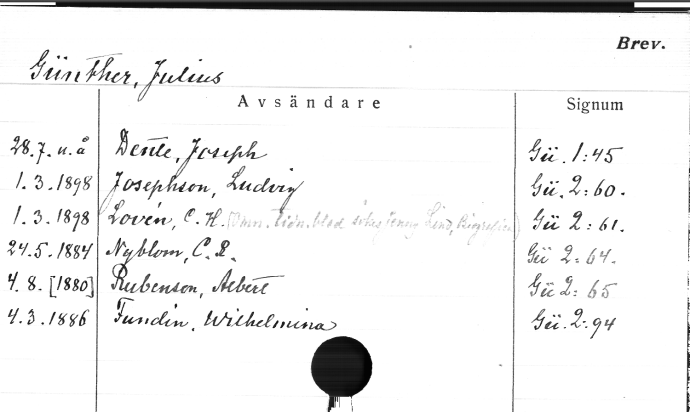 Brev.
Günther, Julius
Avsändare Signum
28.7. u.å Dente, Joseph Gü. 1:45
1.3.1898 Josephson, Ludvig Gü. 2:60.
1.3.1898 Lovén, C. H. Lind, Biografien) Gü 2:61.
24.5.1884 Nyblom, C. R. Gü 2:64.
4.8.[1880] Rubenson, Albert Gü 2:65
4.3.1886 Fundin, Wilhelmina Gü. 2:94